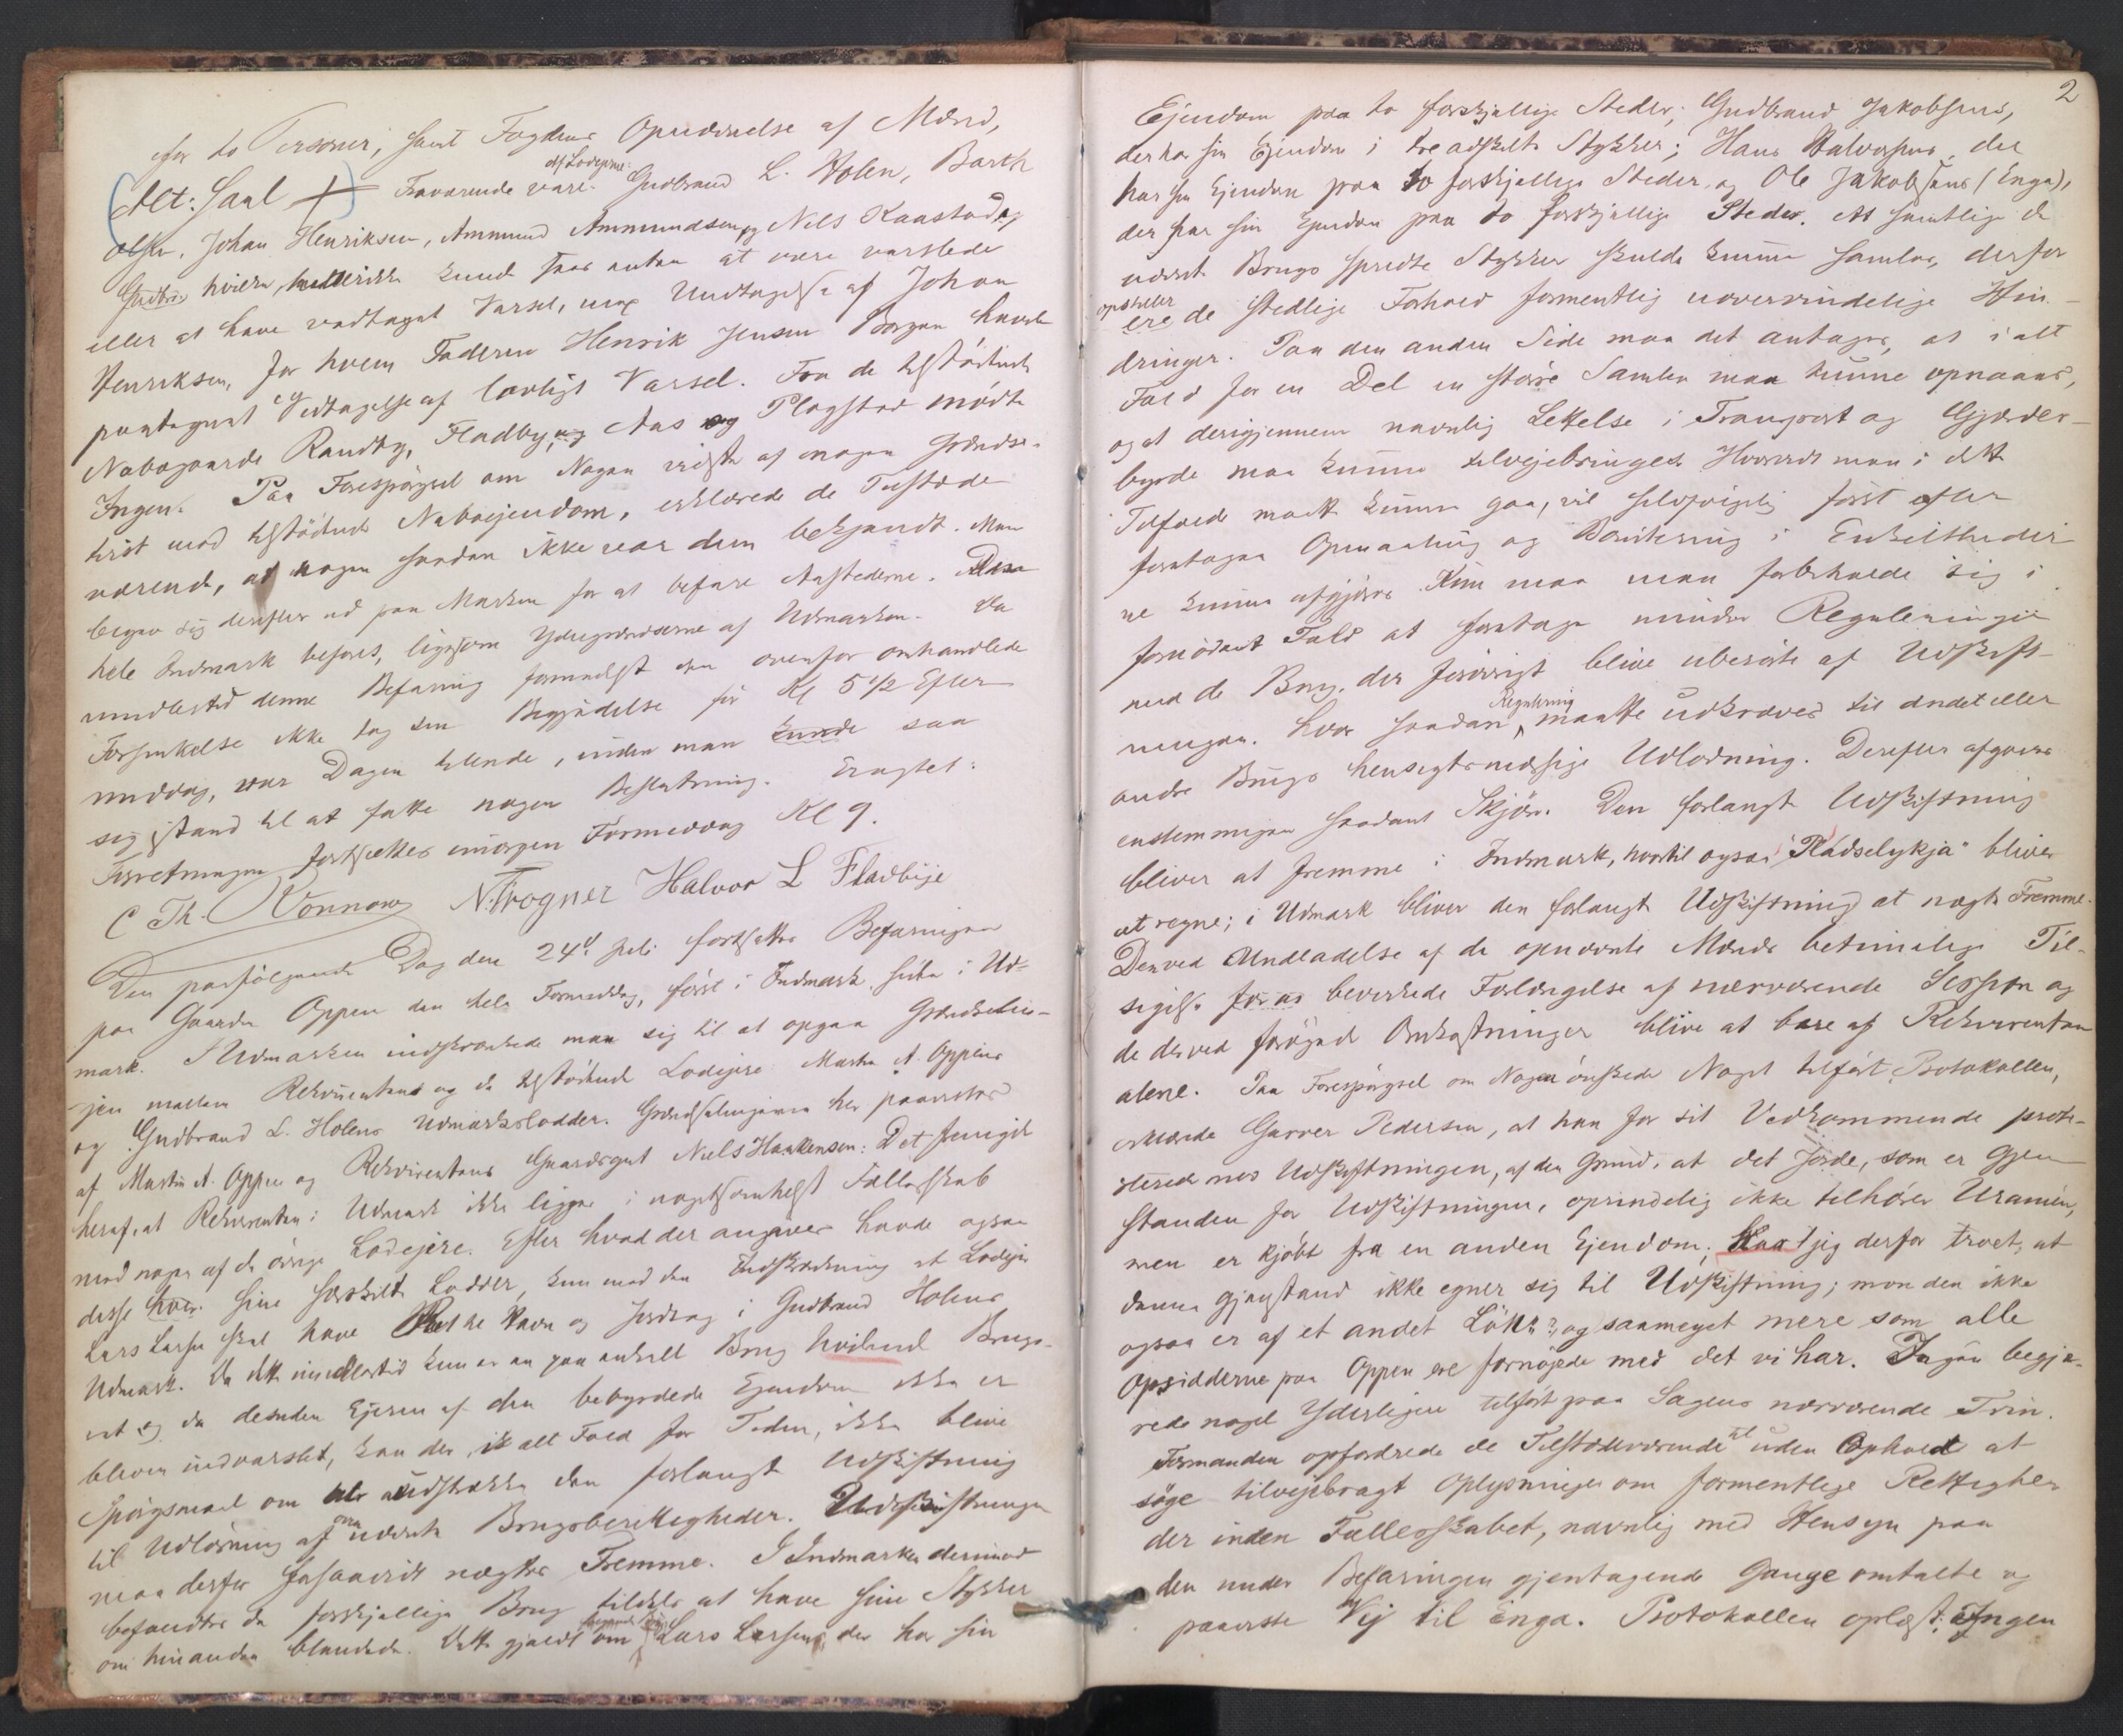 for to Personer, samt Fogdens Opnævnelse af Mænd,
Alt: Saal Fraværende vare af Lodeierne: Gudbrand L. Holen, Barth
Olsen, Johan Henriksen, Ammund Ammundsen og Nels Kaastad og
hvidsen, kunde saaes enten at være varslede
eller at have vedtaget Varsel, med Undtagelse af Johan
Henriksen, for hvem Faderen Henrik Jensen Borgen havde
paategnet Vedtagelse af lovligt Varsel. Fra de tilstødende
Nabogaarde Randby, Fladby, og Aas og Plogstad mødte
Ingen. Paa Forespørgsel om Nogen vidste af nogen Grændse-
tvist med tilstødende Naboeiendom, erklærede de Tilstede-
værende, at nogen saadan ikke var dem bekjendt. Man
begav sig derefter ud paa Marken for at befare Aastederne.
hele Indmark befares, ligesom Ydregrændserne af Udmarken. Da
imidlertid denne Befaring formedelst den ovenfor omhandlede
Forsinkelse ikke tog sin Begyndelse før Kl 5 1/2 Efter
middag, var Dagen tilende, inden man kunde saa
sig istand til at fatte nogen Beslutning. Eragtet:
Forretningen fortsættes imorgen Formiddag Kl 9.
C Th. Vonnow N. Trogner Halvor L Fladbye
Den paafølgende Dag den 24d Juli fortsattes Befaringen
paa Gaarden Oppen den hele Formiddag, først i Indmark, siden i Ud-
mark. I Udmarken indskrænkede man sig til at opgaa Grændselin-
jen mellem Rekvirentens og de tilstødende Lodeiere Martin A. Oppens
og Gudbrand L. Holens Udmarkslodder. Grændselinjerne her paavistes
af Martin A. Oppen og Rekvirentens Gaardsgut Niels Haakensen: Det fremgik
heraf, at Rekvirentens Udmark ikke ligger i nogetsomhelst Fællesskab
med nogen af de øvrige Lodejere. Efter hvad der angives havde ogsaa
disse hver sine særskilte Lodder, kun med den Indskrænkning at Lodejer
Lars Larsen skal have Havn og i Gudbrand Holens
Udmark. Da dette imidlertid kun er en paa enkelt Brug hvilende Brugs-
ret og da desuden Ejeren af den bebyrdede Ejendom ikke er
bleven indvarslet, kan der, ialt Fald for Tiden, ikke blive
Spørgsmaal om at udstrække den forlangte Udskiftning
til Udløsning af omnævnte Brugsberettigheder. Udskiftningen
maa derfor forsaavidt nægtes Fremme. I Indmarken derimod
befandtes de forskjellige Brug tildels at have sine Stykker
om hinanden blandede. Dette gjaldt om Lars Larsens der har sin
2
Ejendom paa to forskjellige Steder; Gudbrand Jakobsens,
der har sin Ejendom i tre adskilte Stykker; Hans Halvorsens der
har sin Ejendom paa to forskjellige Steder og Ole Jakobsens (Enga),
der har sin Ejendom paa to forskjellige Steder. At samtlige de
nævnte Brugs spredte Stykker skulde kunne samles, derfor
opstiller
ere de stedlige Forhold formentlig uovervindelige Hin-
dringer. Paa den anden Side maa det antages, at i alt
Fald for en Del en større Samlen maa kunne opnaaes,
og at derigjennem navnlig Lettelse i Transport og Gjærdes-
byrde maa kunne tilvejebringes. Hvorvidt man i dette
Tilfælde maatte kunne gaa, vil selvfølgelig først efter
foretagen Opmaaling og Bonitering i Enkeltheder-
ne kunne afgjøres. Kun maa man forbeholde sig i
fornødent Fald at foretage mindre Reguleringer
med de Brug, der forøvrigt blive uberørte af Udskift-
ningen, hvor saadan Regulering maatte udkræves til andet eller
andre Brugs hensigtsmæssige Udlodning. Derefter afgaves
enstemmigen saadant Skjøn: Den forlangte Udskiftning
bliver at fremme i Indmark, hvortil ogsaa "Pladselykja" bliver
at regne; i Udmark bliver den forlangte Udskiftning at nægte Fremme.
Den ved Undladelse af de opnævnte Mænds betimelige Til-
sigelse bevirkede Forlængelse af nærværende Session og
de derved forøgede Omkostninger blive at bære af Rekvirenten
alene. Paa Forespørgsel om Nogen ønskede Noget tilført Protokollen,
erklærede Garver Pedersen, at han for sit Vedkommende prote-
sterede mod Udskiftningen, af den Grund, at det Jorde, som er Gjen-
standen for Udskiftningen, oprindelig ikke tilhører Uranien,
men er kjøbt fra en anden Ejendom; Har jeg derfor troet, at
denne Gjenstand ikke egner sig til Udskiftning; mon den ikke
ogsaa er af et andet Løkn??, og saameget mere som alle
Opsidderne paa Oppen ere fornøjede med det vi har. Ingen begjæ-
rede noget Yderligere tilført paa Sagens nærværende Trin.
Formanden opfordrede de Tilstedeværende til uden Ophold at
søge tilvejebragt Oplysninger om formentlige Rettighe-
der inden Fællesskabet, navnlig med Hensyn paa
den under Befaringen gjentagende Gange omtalte og
paaviste Vej til Enga. Protokollen oplæst; Ingen